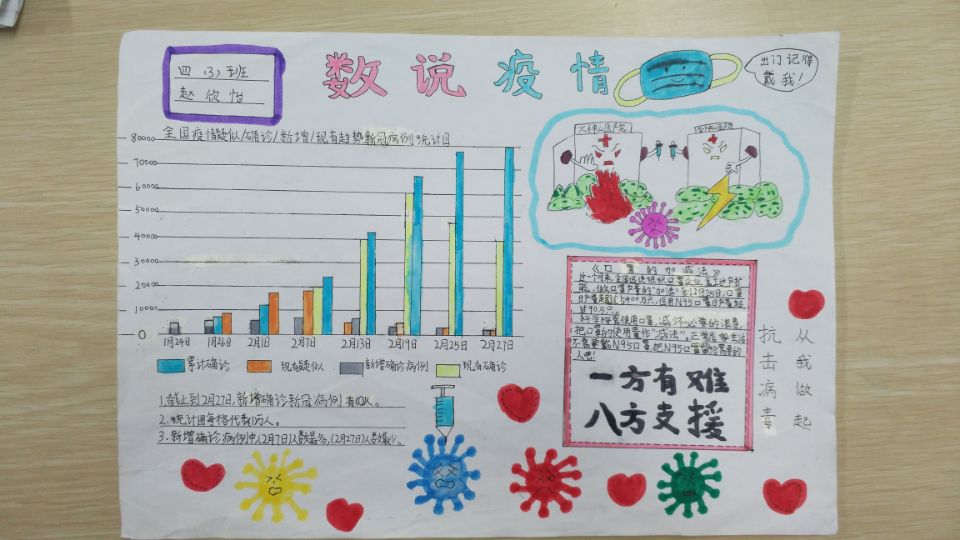 四（3）班
赵欣怡
数说疫情
出门记得
戴我！
全国疫情疑似/确诊/新增/现有趋势新冠病例统计图
80000
70000
60000
50000
40000
30000
20000
10000
0
1月24日 1月26日 2月1日 2月7日 2月13日 2月19日 2月25日 2月27日
累计确诊 现有疑似 新增确诊病例 现有确诊
1.截止到2月27日,新增确诊新冠病例有
2.统计图每格代表1万人。
3.新增确诊病例中,(2月7日)人数最多,(2月27日)人数最少。
火神山医院
《口罩的加减法》
把口罩的使用量作"减法"。正常在生活
不需要戴N95口罩,把N95口罩留给需要的
人吧!
一方有难
八方支援
抗击病毒
从我做起